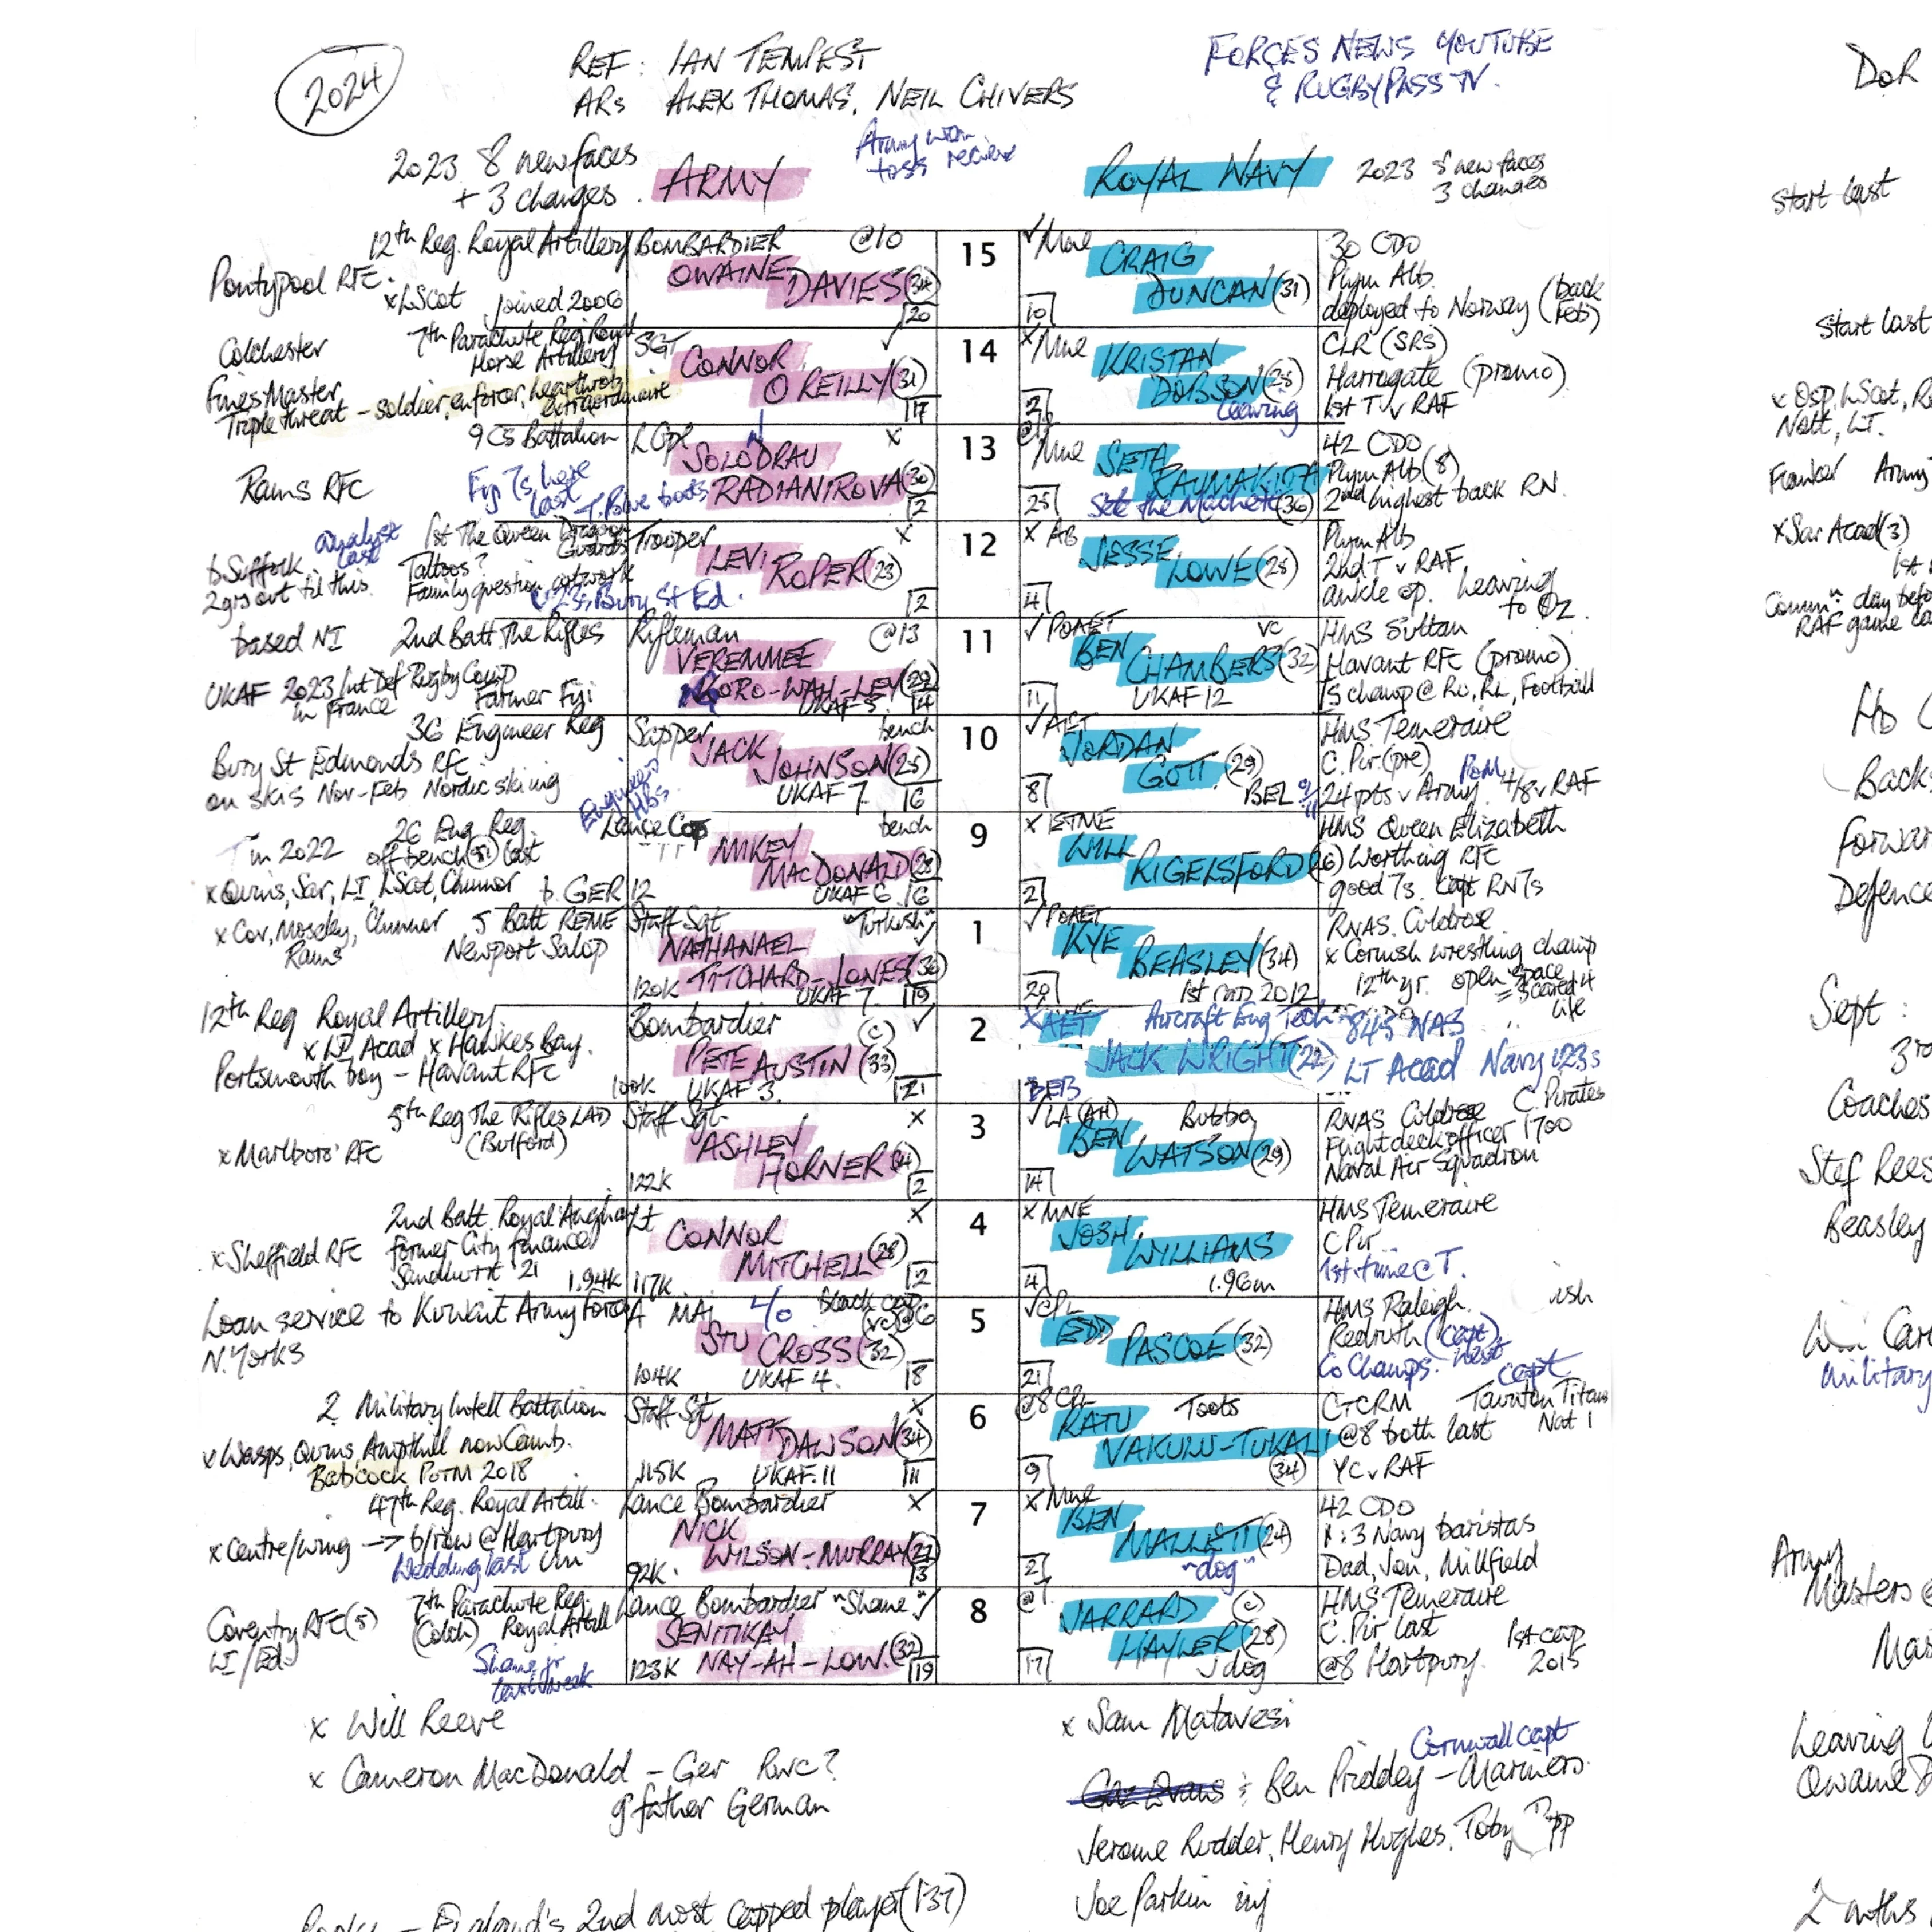 2024
REF: IAN TEMPEST
ARs ALEX THOMAS, NEIL CHIVERS
FORCES NEWS YOUTUBE
& RUGBYPASS TV.
DoR
2023 8 new faces
+ 3 changes
ARMY
Army won
toss receive
ROYAL NAVY
2023 8 new faces
3 changes
Start last
12th Reg. Royal Artillery
Pontypool RFC.
x LScot joined 2006
BOMBARDIER @10
OWAINE DAVIES (34)
20
15
✓ Mne CRAIG
DUNCAN (31)
10
30 CDO
Plym Alb.
deployed to Norway (back Feb)
Start last
Colchester 7th Parachute Reg Royal
Horse Artillery
Fines Master
Triple threat - soldier, enforcer, heartthrob
extraordinaire
SGT ✓
CONNOR
O REILLY (31)
17
14
x Mne KRISTAN
DOBSON (28)
leaving
CLR (SRS)
Harrogate (promo)
1st T v RAF
9 CS Battalion
Rams RFC
Fiji 7s here
last T. Blue boots
LCpl x
SOLODRAU
RADIANIROVA (30)
2
13
Mne SETA
RAUMAKITA
25 Seta the Machete (36)
42 CDO
Plym Alb (8)
2nd highest back RN.
analyst
last
1st The Queen Dragoon
Guards
b Suffolk Tattoos?
2 yrs out til this. Family question artwork
U23s, Bury St Ed.
Trooper x
LEVI ROPER (23)
2
12
x AB JESSE
LOWE (25)
4
Plym Alb
2nd T v RAF
ankle op. Leaving
to Oz
based NI 2nd Batt. The Rifles
UKAF 2023 Int Def Rugby Comp
in France Farmer Fiji
Rifleman @13
VEREIMEE
KORO-WAH-LEY (29)
UKAF 5 14
11
✓ POAET vc
BEN CHAMBERS (32)
11 UKAF 12
HMS Sultan
Havant RFC (promo)
IS champ @ RU, RL, Football
36 Engineer Reg
Bury St Edmonds RFC
on skis Nov-Feb Nordic skiing
Engineers
HBs
Sapper bench
JACK
JOHNSON (25)
UKAF 7 6
10
✓ AET
JORDAN
GOTT (29)
8 BEL
HMS Temeraire
C. Pir (pre)
24 pts v Army POM 4/8 v RAF
26 Eng Reg.
T in 2022 off bench (51) last
x Quins, Sar, LI, LScot, Chinnor b. GER
Lance Cpl bench
MIKEY
MACDONALD (28)
12 UKAF 6 6
9
x ETME
WILL
RIGELSFORD (26)
2
HMS Queen Elizabeth
Worthing RFC
good 7s. capt RN 7s
x Cov, Moseley, Chinnor 5 Batt REME
Rams Newport Salop
Staff Sgt "Turkish" ✓
NATHANAEL
TITCHARD-JONES (36)
120K UKAF 7 19
1
✓ POAET
KYE
BEASLEY (34)
20 1st cap 2012
RNAS. Culdrose
x Cornish wrestling champ
12th yr. open space
= scared 4
life
12th Reg Royal Artillery
x LI Acad x Hawkes Bay.
Portsmouth boy - Havant RFC
Bombardier (c) ✓
PETE AUSTIN (33)
100K UKAF 3. 21
2
x AET Aircraft Eng Tech 845 NAS
JACK WRIGHT (22) LI Acad Navy U23s
DEB
5th Reg The Rifles LAD
(Bulford)
x Marlboro' RFC
Staff Sgt x
ASHLEY
HORNER
122K 2
3
✓ LA (AH) Bubba
BEN
WATSON (29)
14
RNAS Culdrose C. Pirates
Flight deck officer 1700
Naval Air Squadron
2nd Batt. Royal Anglian
x Sheffield RFC former City finance
Sandhurst 21 1.94K
Lt x
CONNOR
MITCHELL (28)
117K 2
4
x MNE
JOSH
WILLIAMS
4 1.96m
HMS Temeraire
C Pir
1st time @ T.
Loan service to Kuwait Army Force
N. Yorks
A MAJ black cap
(vc) @6
STU CROSS (32)
104K UKAF 4. 18
5
✓ CPL
EDD
PASCOE (32)
21
HMS Raleigh
Redruth (capt)
Co Champs. next
capt
2 Military Intell Battalion
x Wasps, Quins, Ampthill now Camb.
Babcock PoTM 2018
Staff Sgt x
MATT DAWSON (34)
115K UKAF. 11 11
6
@8 CPL
RATU Toots
VAKULU-TUKALI
9 (34)
CTCRM Taunton Titans
@8 both last Nat 1
YC v RAF
47th Reg. Royal Artill.
x Centre/wing -> b/row @ Hartpury
Wedding last Uni
Lance Bombardier x
NICK
WILSON-MURRAY (27)
92K. 3
7
x Mne
BEN
MALLETT (24)
2 "dog"
42 CDO
1:3 Navy baristas
Dad, Jon, Millfield
7th Parachute Reg.
Coventry RFC (5) (Colch) Royal Artill
LI / Ed
Shane jr
last week
Lance Bombardier "Shane" ✓
SENITIKAY
NAY-AH-LOW. (32)
123K 19
8
@7 JARRARD (c)
HAYLER (28)
17 J dog
HMS Temeraire
C. Pir last 1st cap
@8 Hartpury. 2015
x Will Reeve
x Cameron MacDonald - Ger RWC?
g'father German
x Sam Matavesi
Cornwall capt
Ben Priddey - Mariners
Jerome Rudder, Henry Hughes, Toby
Joe Parkin inj
England's 2nd most capped player (137)
x Osp, LScot,
Nott, LI.
Flanker Army
x Sar Acad (3)
1st
Comm. day before
RAF game
Back
Forwar
Defence
Sept:
3rd
Coaches
Stef Rees
Beasley
Car
Military
Army
Masters @
Mas
Leaving
Owaine D
2 mths